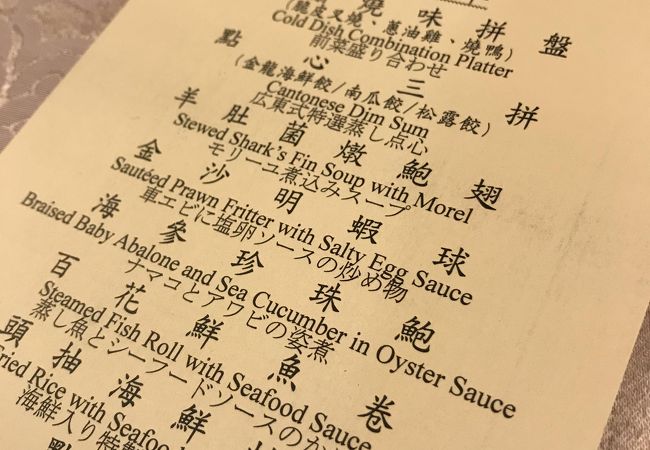 燒味拼盤
(脆皮叉燒、蔥油雞、燒鴨)
Cold Dish Combination Platter
前菜盛り合わせ
點心三拼
(金龍海鮮餃/南瓜餃/松露餃)
Cantonese Dim Sum
広東式特選蒸し点心
羊肚菌燉鮑翅
Stewed Shark's Fin Soup with Morel
モリーユ煮込みスープ
金沙明蝦球
Sautéed Prawn Fritter with Salty Egg Sauce
車エビに塩卵ソースの炒め物
海參珍珠鮑
Braised Baby Abalone and Sea Cucumber in Oyster Sauce
ナマコとアワビの姿煮
百花鮮魚卷
Steamed Fish Roll with Seafood Sauce
蒸し魚とシーフードソースの
頭抽海鮮
Rice with Seafood
海鮮入り特製